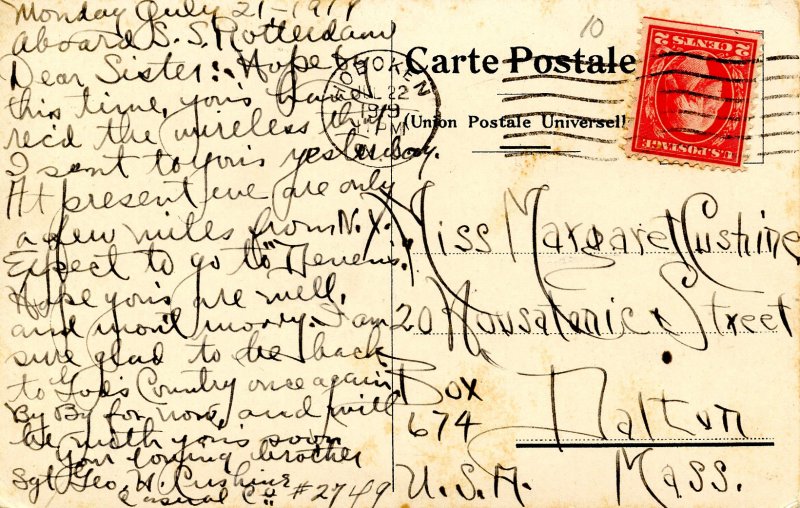 Monday July 21-1919
Aboard S.S. Rotterdam
Dear Sister:. Hope by
this time, you's have
rec'd the wireless that
I sent to you's yesterday.
At present we are only
a few miles from N.Y.
Expect to go to "Devens".
Hope you's are well,
and don't worry. I am
sure glad to be back
to God's Country once again.
By By for now, and will
be with you's soon
Your loving brother
Sgt. Geo. W. Cushing
Casual Co. #2749
10
HOBOKEN
22
1919
PM
Carte Postale
(Union Postale Universell
U.S. POSTAGE
2 CENTS 2
Miss Margaret Cushing
20 Housatonic Street
Box
674
Dalton
U.S.A. Mass.